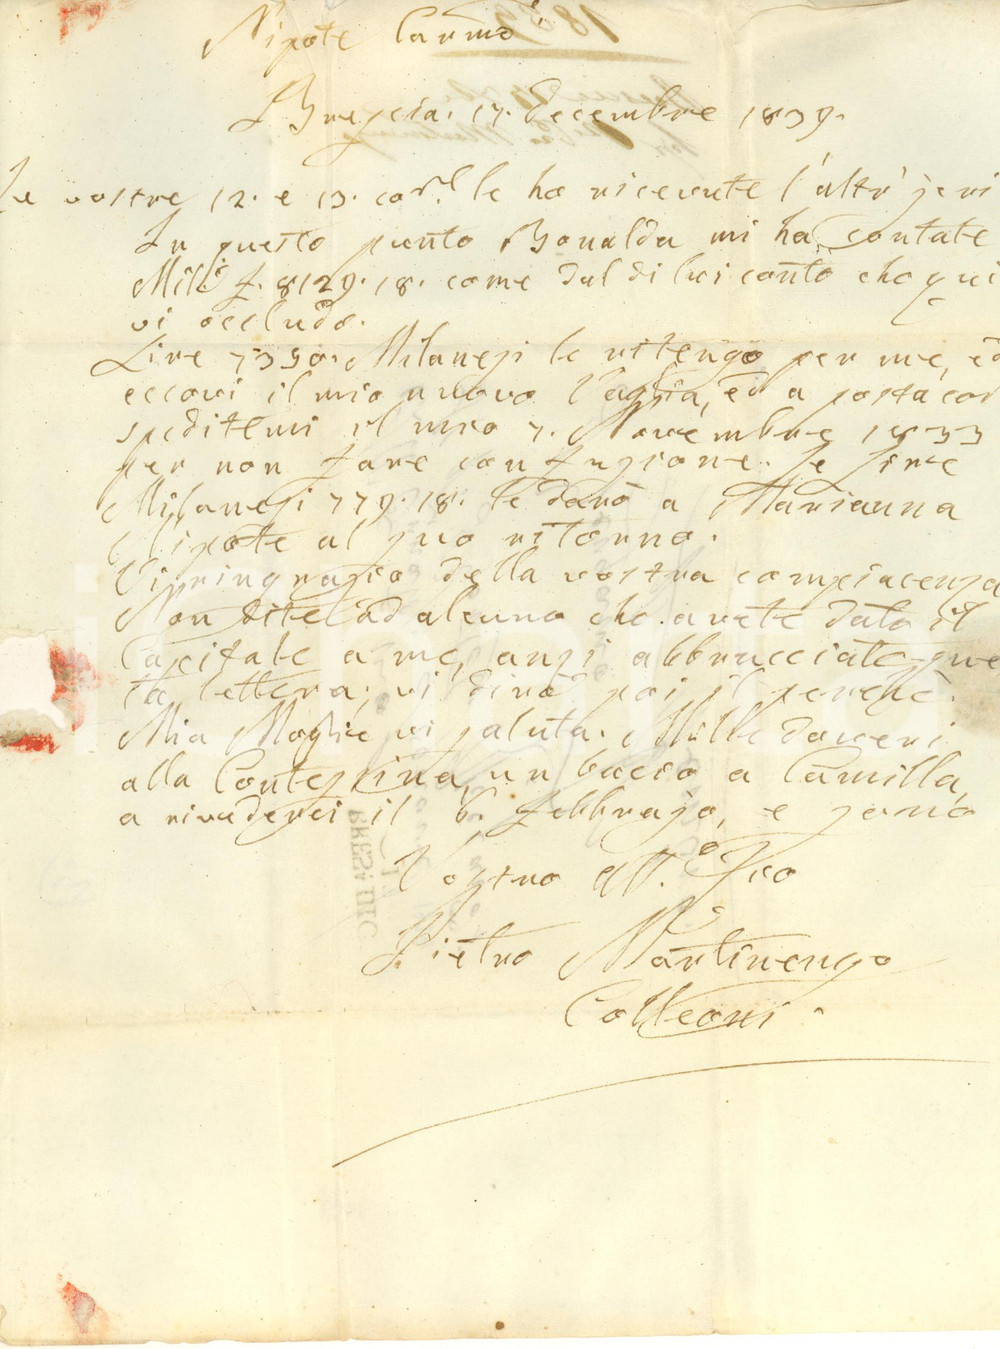 Nipote Carmo
Brescia. 17. Decembre 1839.
Le vostre 12. e 13. corr.te le ho ricevute l'altr'jeri
In questo punto Bonalda mi ha contate
Mile £. 8129.18. come dal di lui conto che qui
vi occludo.
Lire 7350. Milanesi le ritengo per me, ed
eccovi il mio nuovo Vaglia, ed a posta cor
speditemi il mio 7. Novembre 1833
per non fare confusione. Le Lire
Milanesi 779.18. le darò a Marianna
Nipote al suo ritorno.
Vi ringrazio della vostra compiacenza
Non dite ad alcuno che avete dato il
Capitale a me, anzi abbrucciate que
ta lettera; vi dirò poi il perchè.
Mia Moglie vi saluta. Mille doveri
alla Contessina, un bacio a Camilla,
a rivederci il 6. febbrajo, e sono
Vostro aff.o Zio
Pietro Martinengo
Colleoni.